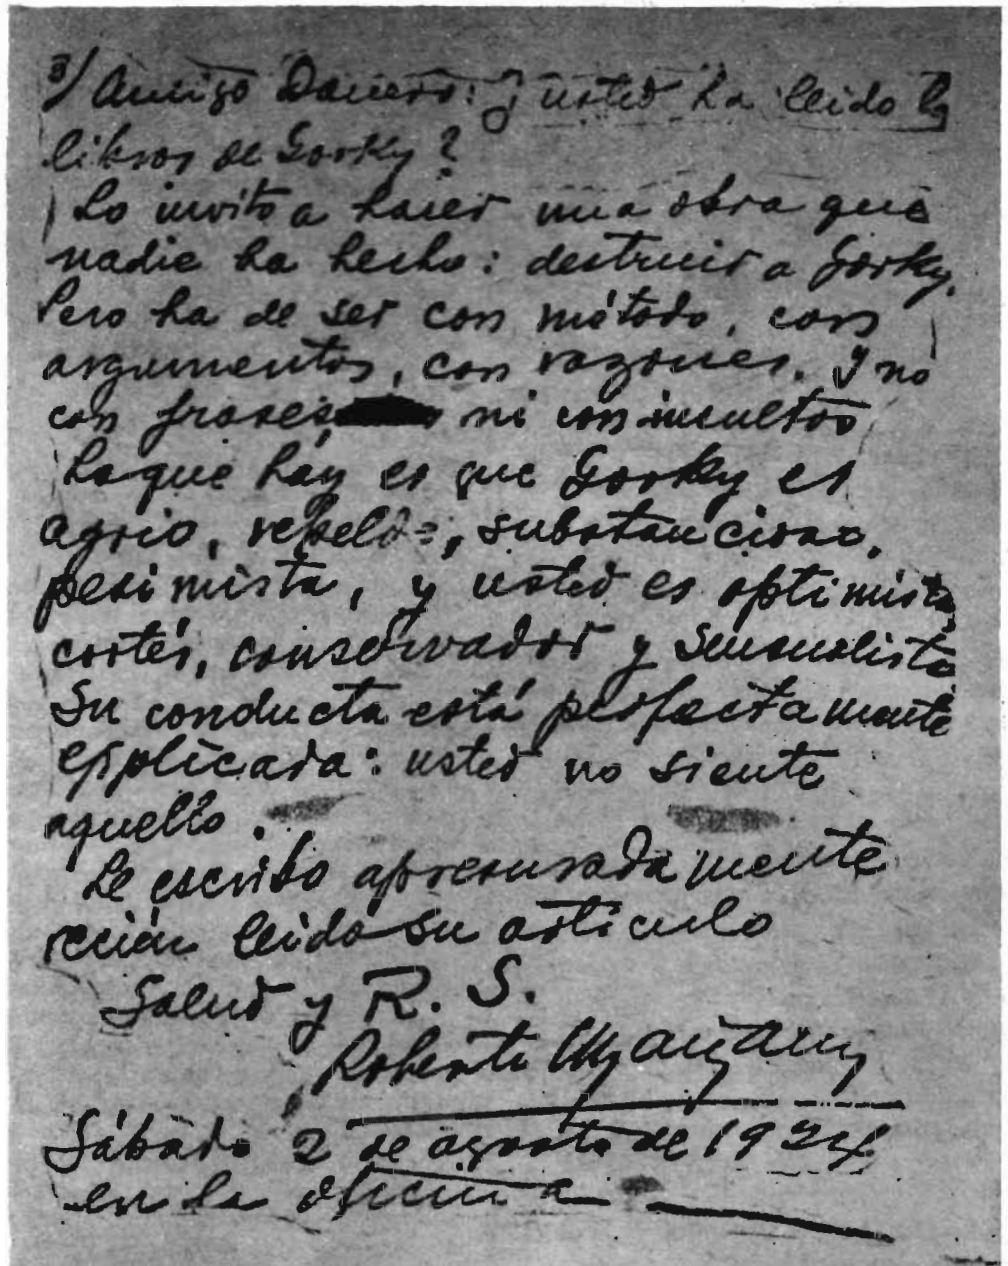 3/ Amigo Danero: ¿usted ha leido los
libros de Gorky?
Lo invito a hacer una obra que
nadie ha hecho: destruir a Gorky.
Pero ha de ser con método, con
argumentos, con razones. Y no
con frases ni con insultos
Lo que hay es que Gorky es
agrio, rebelde, substancioso,
pesimista, y usted es optimista,
cortés, conservador y sensualista
Su conducta está perfectamente
esplicada: usted no siente
aquello.
Le escribo apresuradamente
recién leido su artículo
Salud y R. S.
Roberto Mariani
Sábado 2 de agosto de 1924
en la oficina